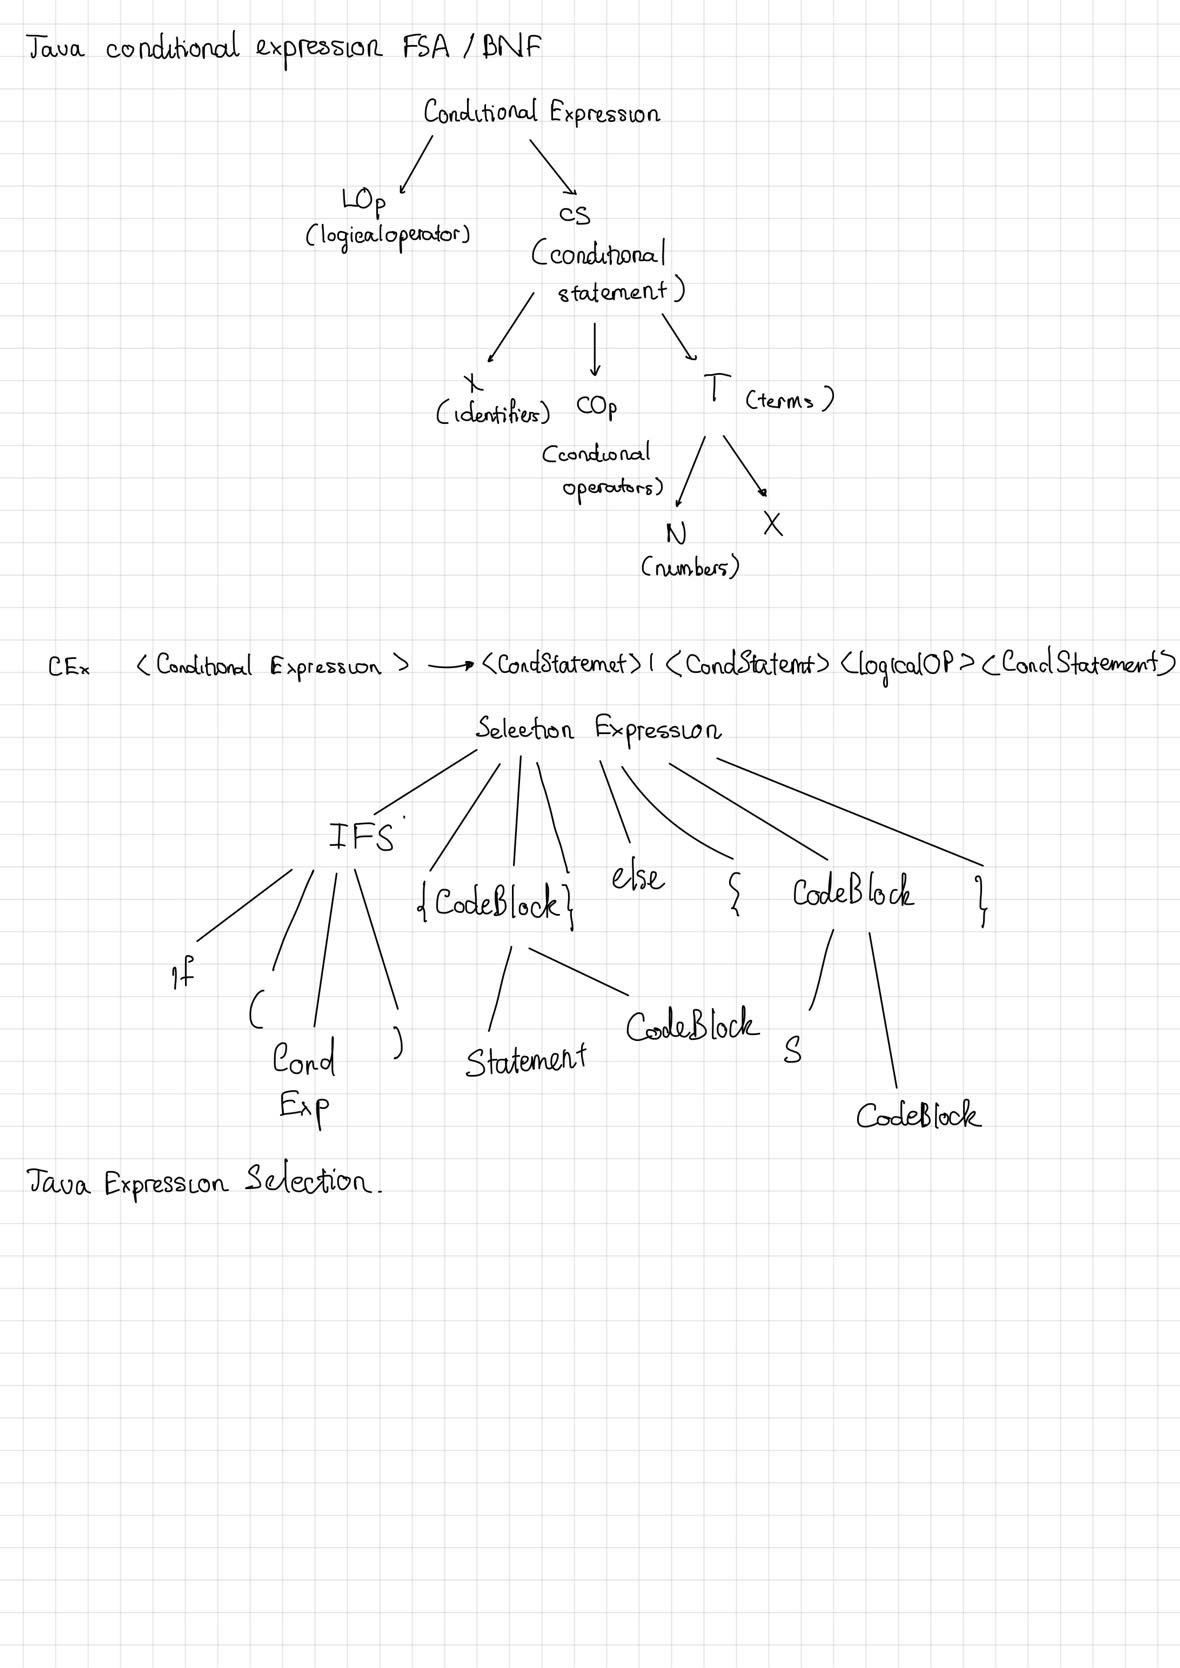 Java conditional expression FSA / BNF
Conditional Expression
LOp
(logical operator)
CS
(conditional
statement)
X
(identifiers)
COp
(condional
operators)
T (terms)
N
(numbers)
X
CEx <Conditional Expression> → <CondStatemet> | <CondStatemt> <logicalOP> <CondStatement>
Selection Expression
IFS
{CodeBlock}
else
{ CodeBlock }
if
(
Cond
Exp
)
Statement
CodeBlock
S
CodeBlock
Java Expression Selection.